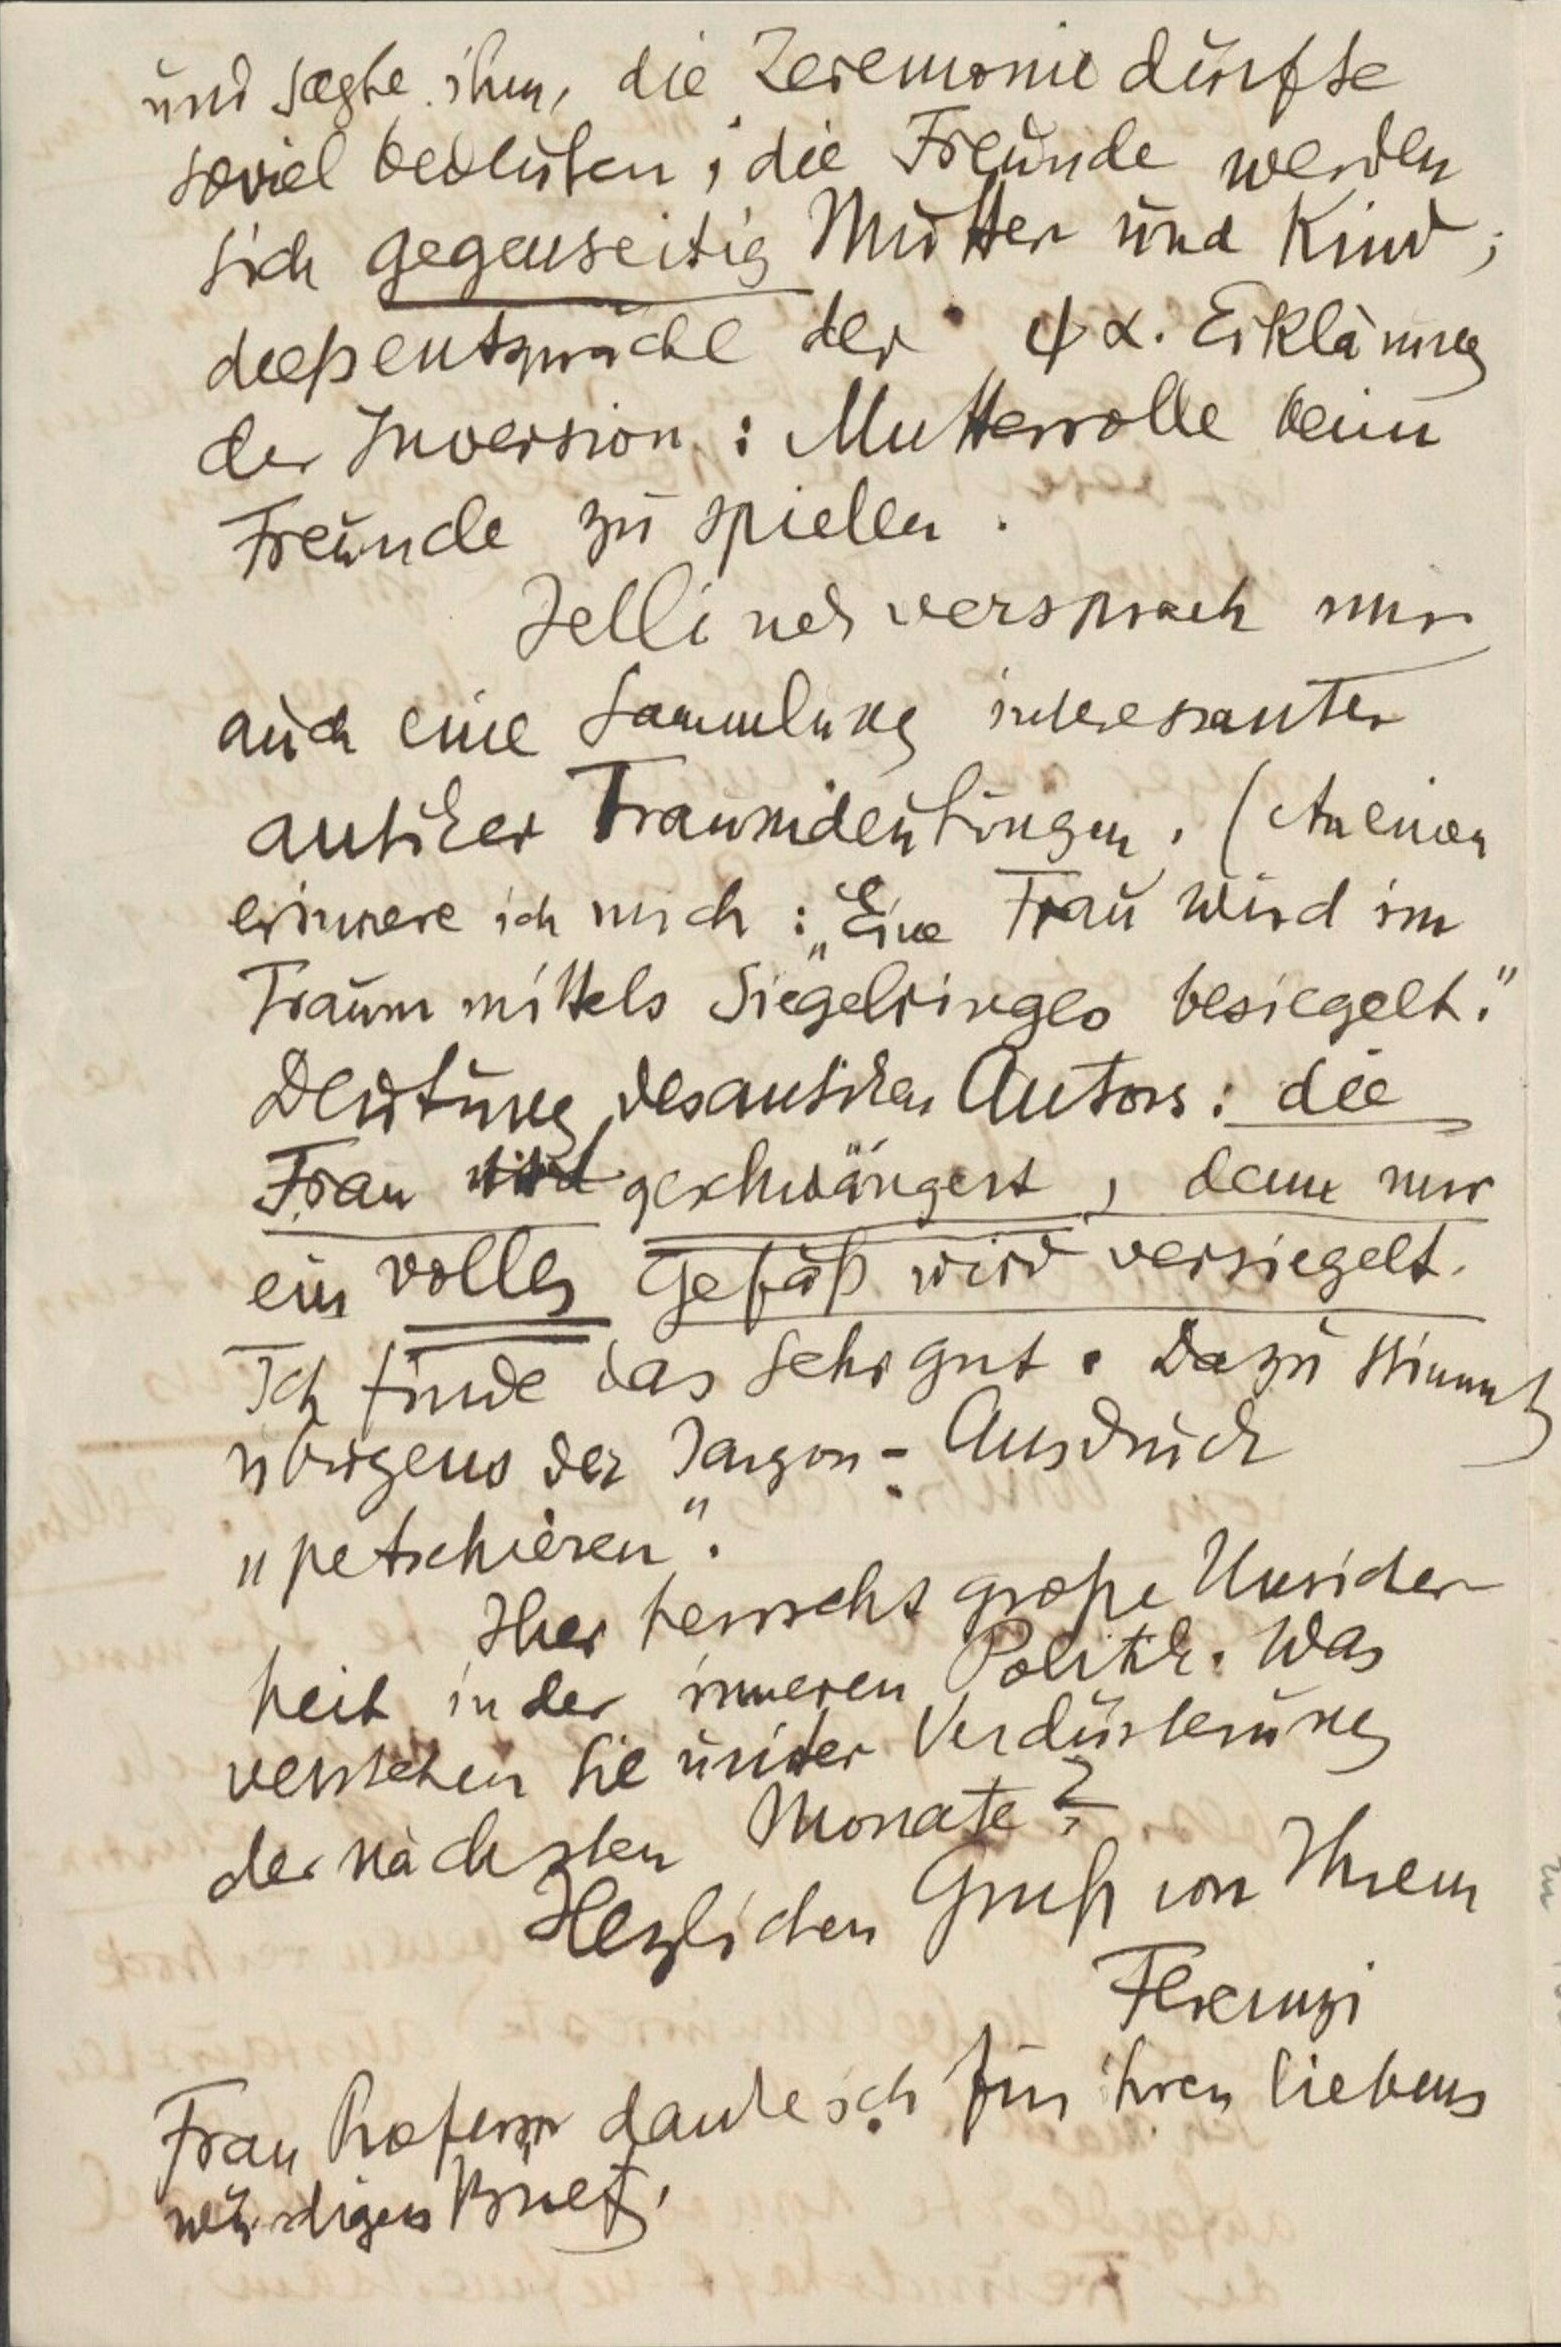 und sagte ihm, die Zeremonie dürfte
soviel bedeuten; die Freunde werden
sich gegenseitig Mutter und Kind;
dieß entspräche der ψα. Erklärung
der Inversion: Mutterrolle beim
Freunde zu spielen.
Jellinek versprach mir
auch eine Sammlung interessanter
antiker Traumdeutungen. (An einen
erinnere ich mich: „Eine Frau wird im
Traum mittels Siegelringes besiegelt."
Deutung des antiken Autors: die
Frau wird geschwängert, denn nur
ein volles Gefäß wird versiegelt.
Ich finde das sehr gut. Dazu stimmt
übrigens der Jargon-Ausdruck
„petschieren".
Hier herrscht große Unsicher-
heit in der inneren Politik. Was
verstehen Sie unter Verdüsterung
der nächsten Monate?
Herzlichen Gruß von Ihrem
Ferenczi
Frau Professor danke ich für ihren liebens
würdigen Brief.